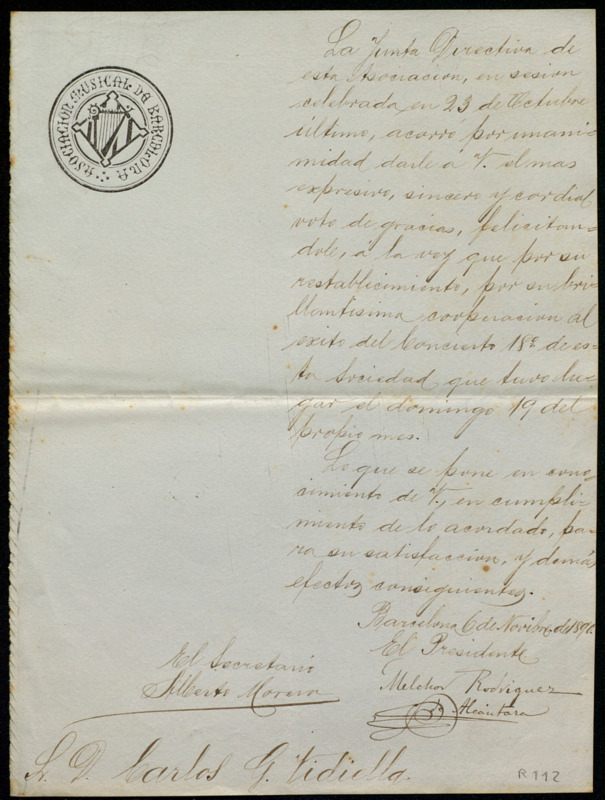 ASOCIACION MUSICAL DE BARCELONA
La Junta Directiva de
esta Asociacion, en sesion
celebrada en 23 de Octubre
último, acordó por unani-
midad darle á V. el mas
expresivo, sincero y cordial
voto de gracias, felicitan-
dole, a la vez que por su
restablecimiento, por su bri-
llantisima cooperacion al
exito del Concierto 18º de es-
ta Sociedad que tuvo lu-
gar el domingo 19 del
propio mes.
Lo que se pone en cono-
cimiento de V., en cumpli-
miento de lo acordado, pa-
ra su satisfacción, y demás
efectos consiguientes.
Barcelona 6 de Novibre de 1890.
El Presidente
Melchor Rodriguez
Alcántara
El Secretario
Alberto Morera
S. D. Carlos G. Vidiella.
R 112